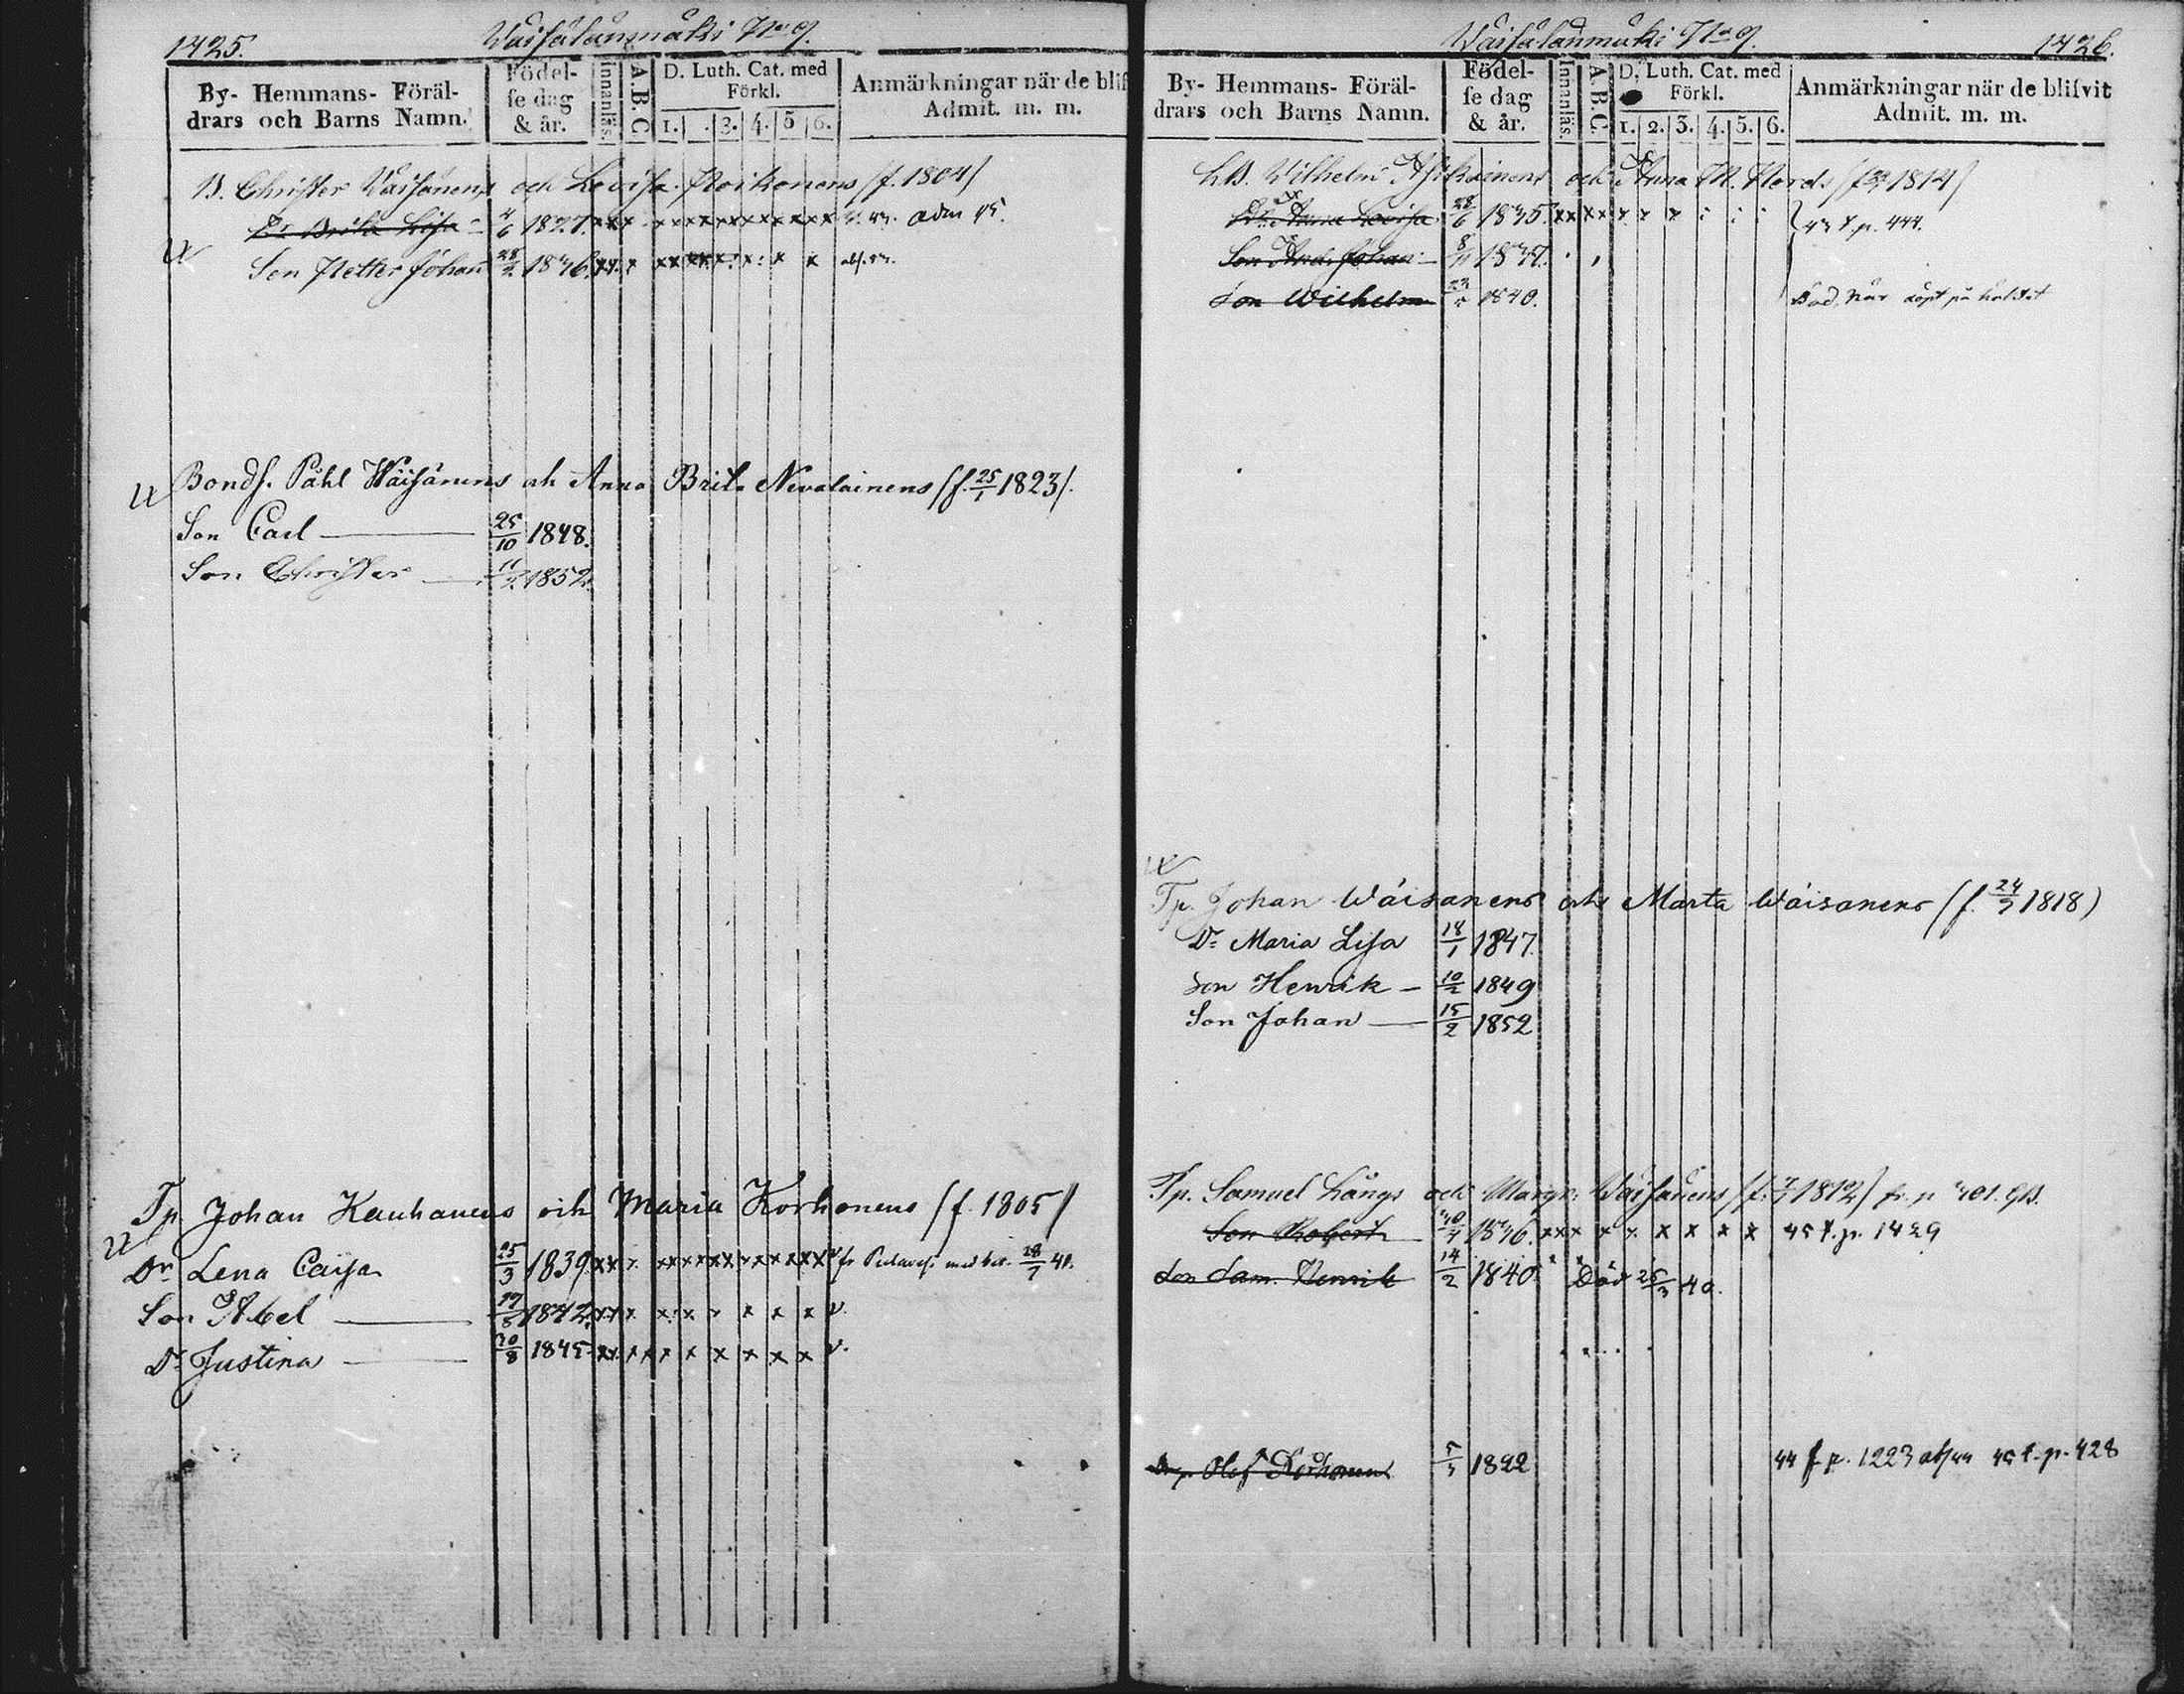 1425. Wäisälänmäki No 9.
By- Hemmans- Föräl-
drars och Barns Namn.
Födel-
se dag
& år.
Innanläs.
A.B.C
D. Luth. Cat. med
Förkl.
1. . 3. 4. 5 6.
Anmärkningar när de blif
Admit. m. m.
B. Christer Wäisänens och Lovisa Roikonens /f. 1804/
Dr Brita Lisa 4/6 1827. xxx xxxxxxxxxxx adm 45.
Son Petter Johan 28/2 1836. xx x
Bonds. Påhl Wäisänens och Anna Brita Nevalainens /f. 25/1 1823/.
Son Carl 25/10 1848.
Son Christer 11/2 1852.
Tp Johan Kauhanens och Maria Korhonens /f. 1805/
Dr Lena Caisa 25/3 1839. xxx xxxxxxxxxxx fr Pielavesi med bet. 28/7 41.
Son Abel 1842. xxx x x x x x x v.
Dr Justina 30/8 1845. xx x x x x x x x x v.
Wäisälänmäki No 9. 1426.
By- Hemmans- Föräl-
drars och Barns Namn.
Födel-
se dag
& år.
Innanläs.
A.B.C.
D. Luth. Cat. med
Förkl.
1. 2. 3. 4. 5. 6.
Anmärkningar när de blifvit
Admit. m. m.
Wilhelm Asikainens och Anna M. Nords 1814/
Dr Anna Lovisa 28/6 1835. xx xx x x x 43 t. p. 444.
Son And. Johan 8/11 1837.
Son Wilhelm 1840.
Tp. Johan Wäisänens och Marta Wäisänens (f. 24/7 1818)
Dr Maria Lisa 18/1 1847.
Son Henrik 10/2 1849
Son Johan 15/2 1852
Tp. Samuel Långs och Margr. Wäisänens 1812/ fr. p 301.
Son Robert 1836. xxx x x x x x x 45 t. p. 1429
Son Sam. Henrik 14/2 1840. Död 25/3 40.
Olof Korhonen 5/3 1822 44 f p. 1223 45 t. p. 428